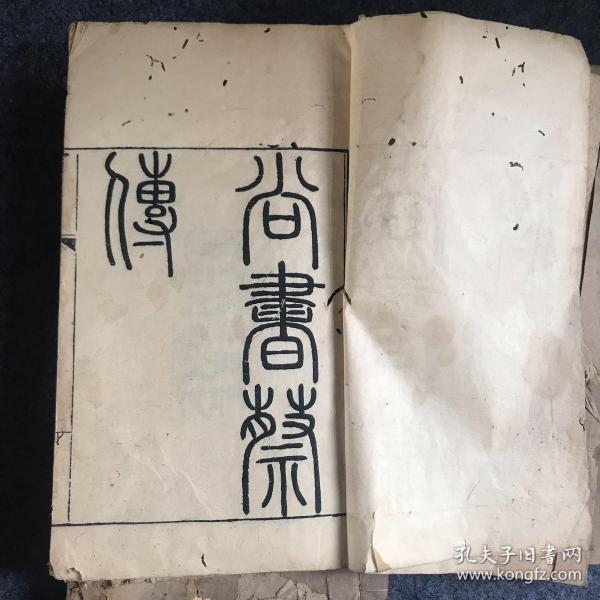 尚書蔡
傳
孔夫子旧书网
www.kongfz.com